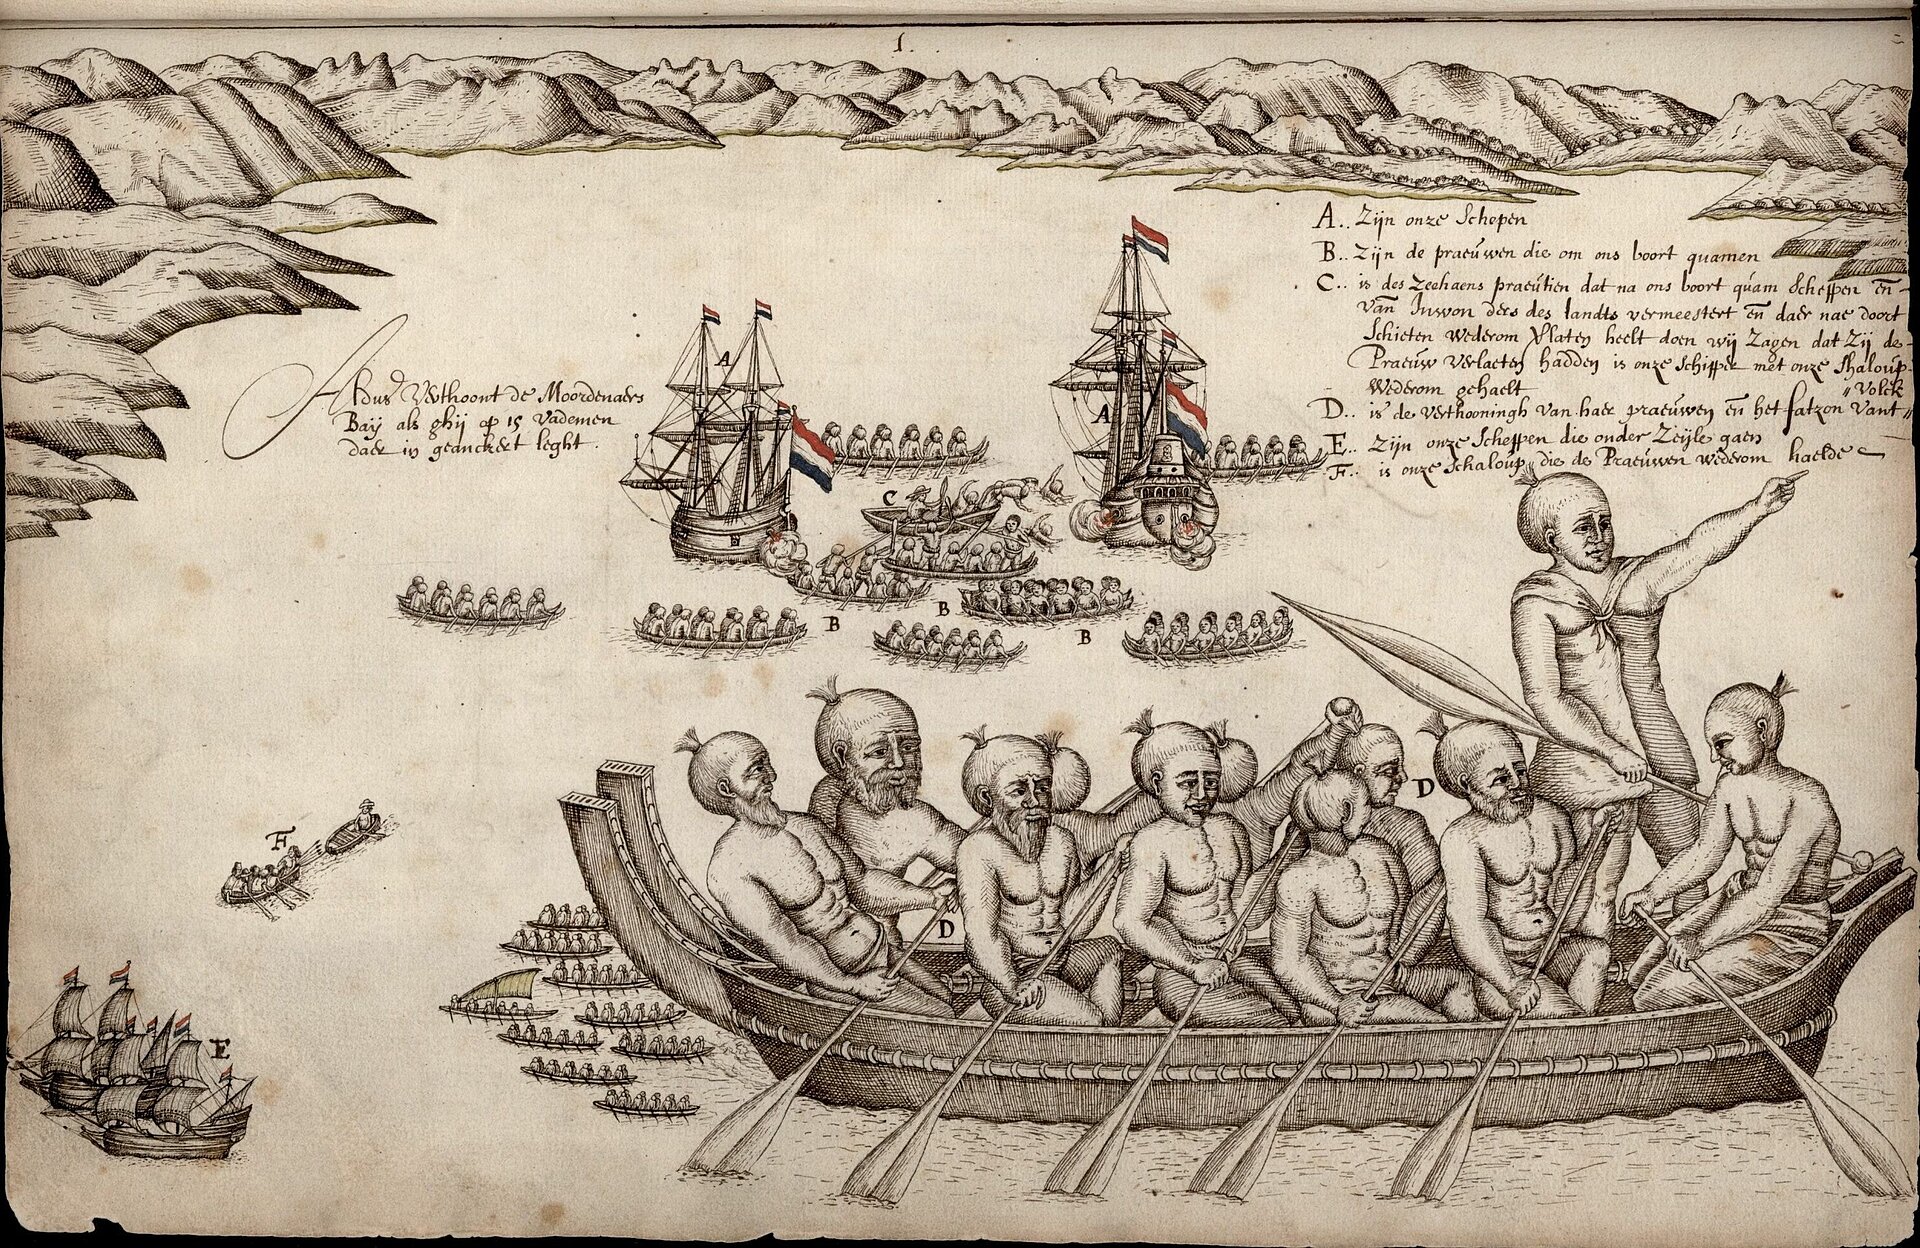 1.
A.. Zijn onze Schepen
B.. Zijn de praeuwen die om ons boort quamen
C.. is des Zeehaens praeutien dat na ons boort quam Scheppen en
van Inwon ders des landts vermeestert en daer nae doort
Schieten wederom Verlaten heelt doen wij Zagen dat Zij de
Praeuw verlaeten hadden is onze Schipper met onze Shaloup
wederom gehaelt
"Volck
D.. is de verthooningh van haer praeuwen en het fatzon vant "
E.. Zijn onze Scheppen die onder Zeijle gaen
F.. is onze Schaloup die de Praeuwen wederom haelde
Aldus Verthoont de Moordenaers
Baij als ghij op 15 vademen
daer in geanckert leght.
A
A
C
B
B
B
D
D
F
E